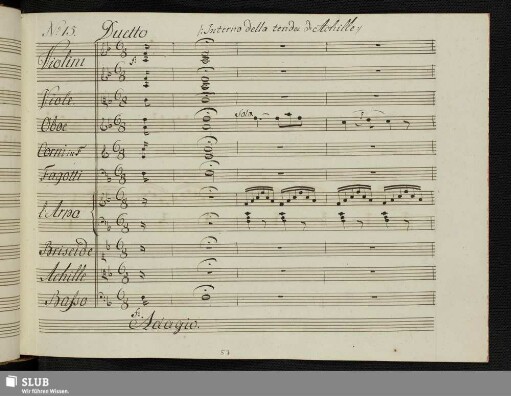 N.º 15. Duetto (: Interno della tenda di Achille)
Violini
Viole
Oboe
Solo
Corni in F
Fagotti
l'Arpa
Briseide
Achille
Basso
Adagio.
53
SLUB
Wir führen Wissen.